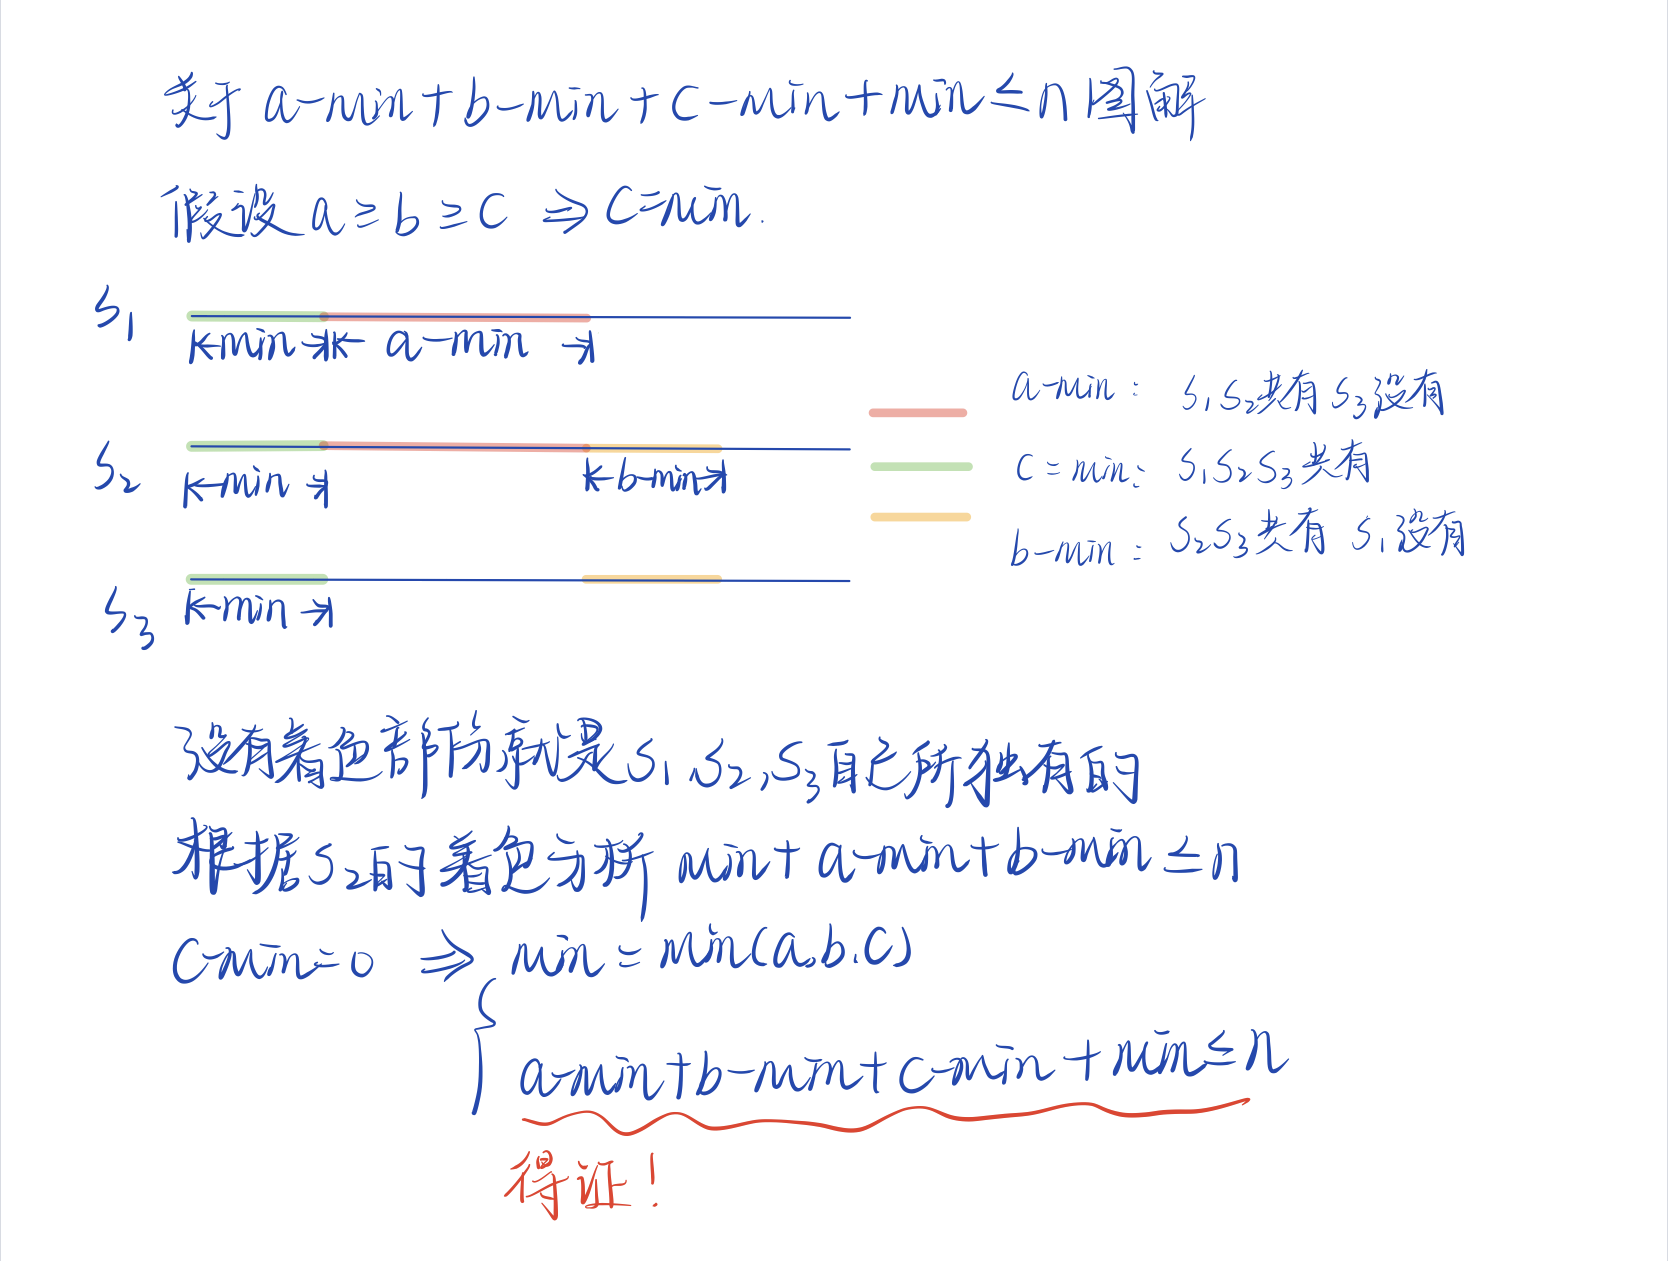 关于 a-min+b-min+c-min+min≤n 图解
假设 a≥b≥c ⇒ c=min.
S₁
min a-min
a-min: S₁S₂共有 S₃没有
S₂
min b-min
c=min: S₁S₂S₃共有
b-min: S₂S₃共有 S₁没有
S₃
min
没有着色部份就是S₁,S₂,S₃自己所独有的
根据S₂的着色分析 min+a-min+b-min≤n
c-min=0 ⇒ min=min(a,b,c)
a-min+b-min+c-min+min≤n
得证!